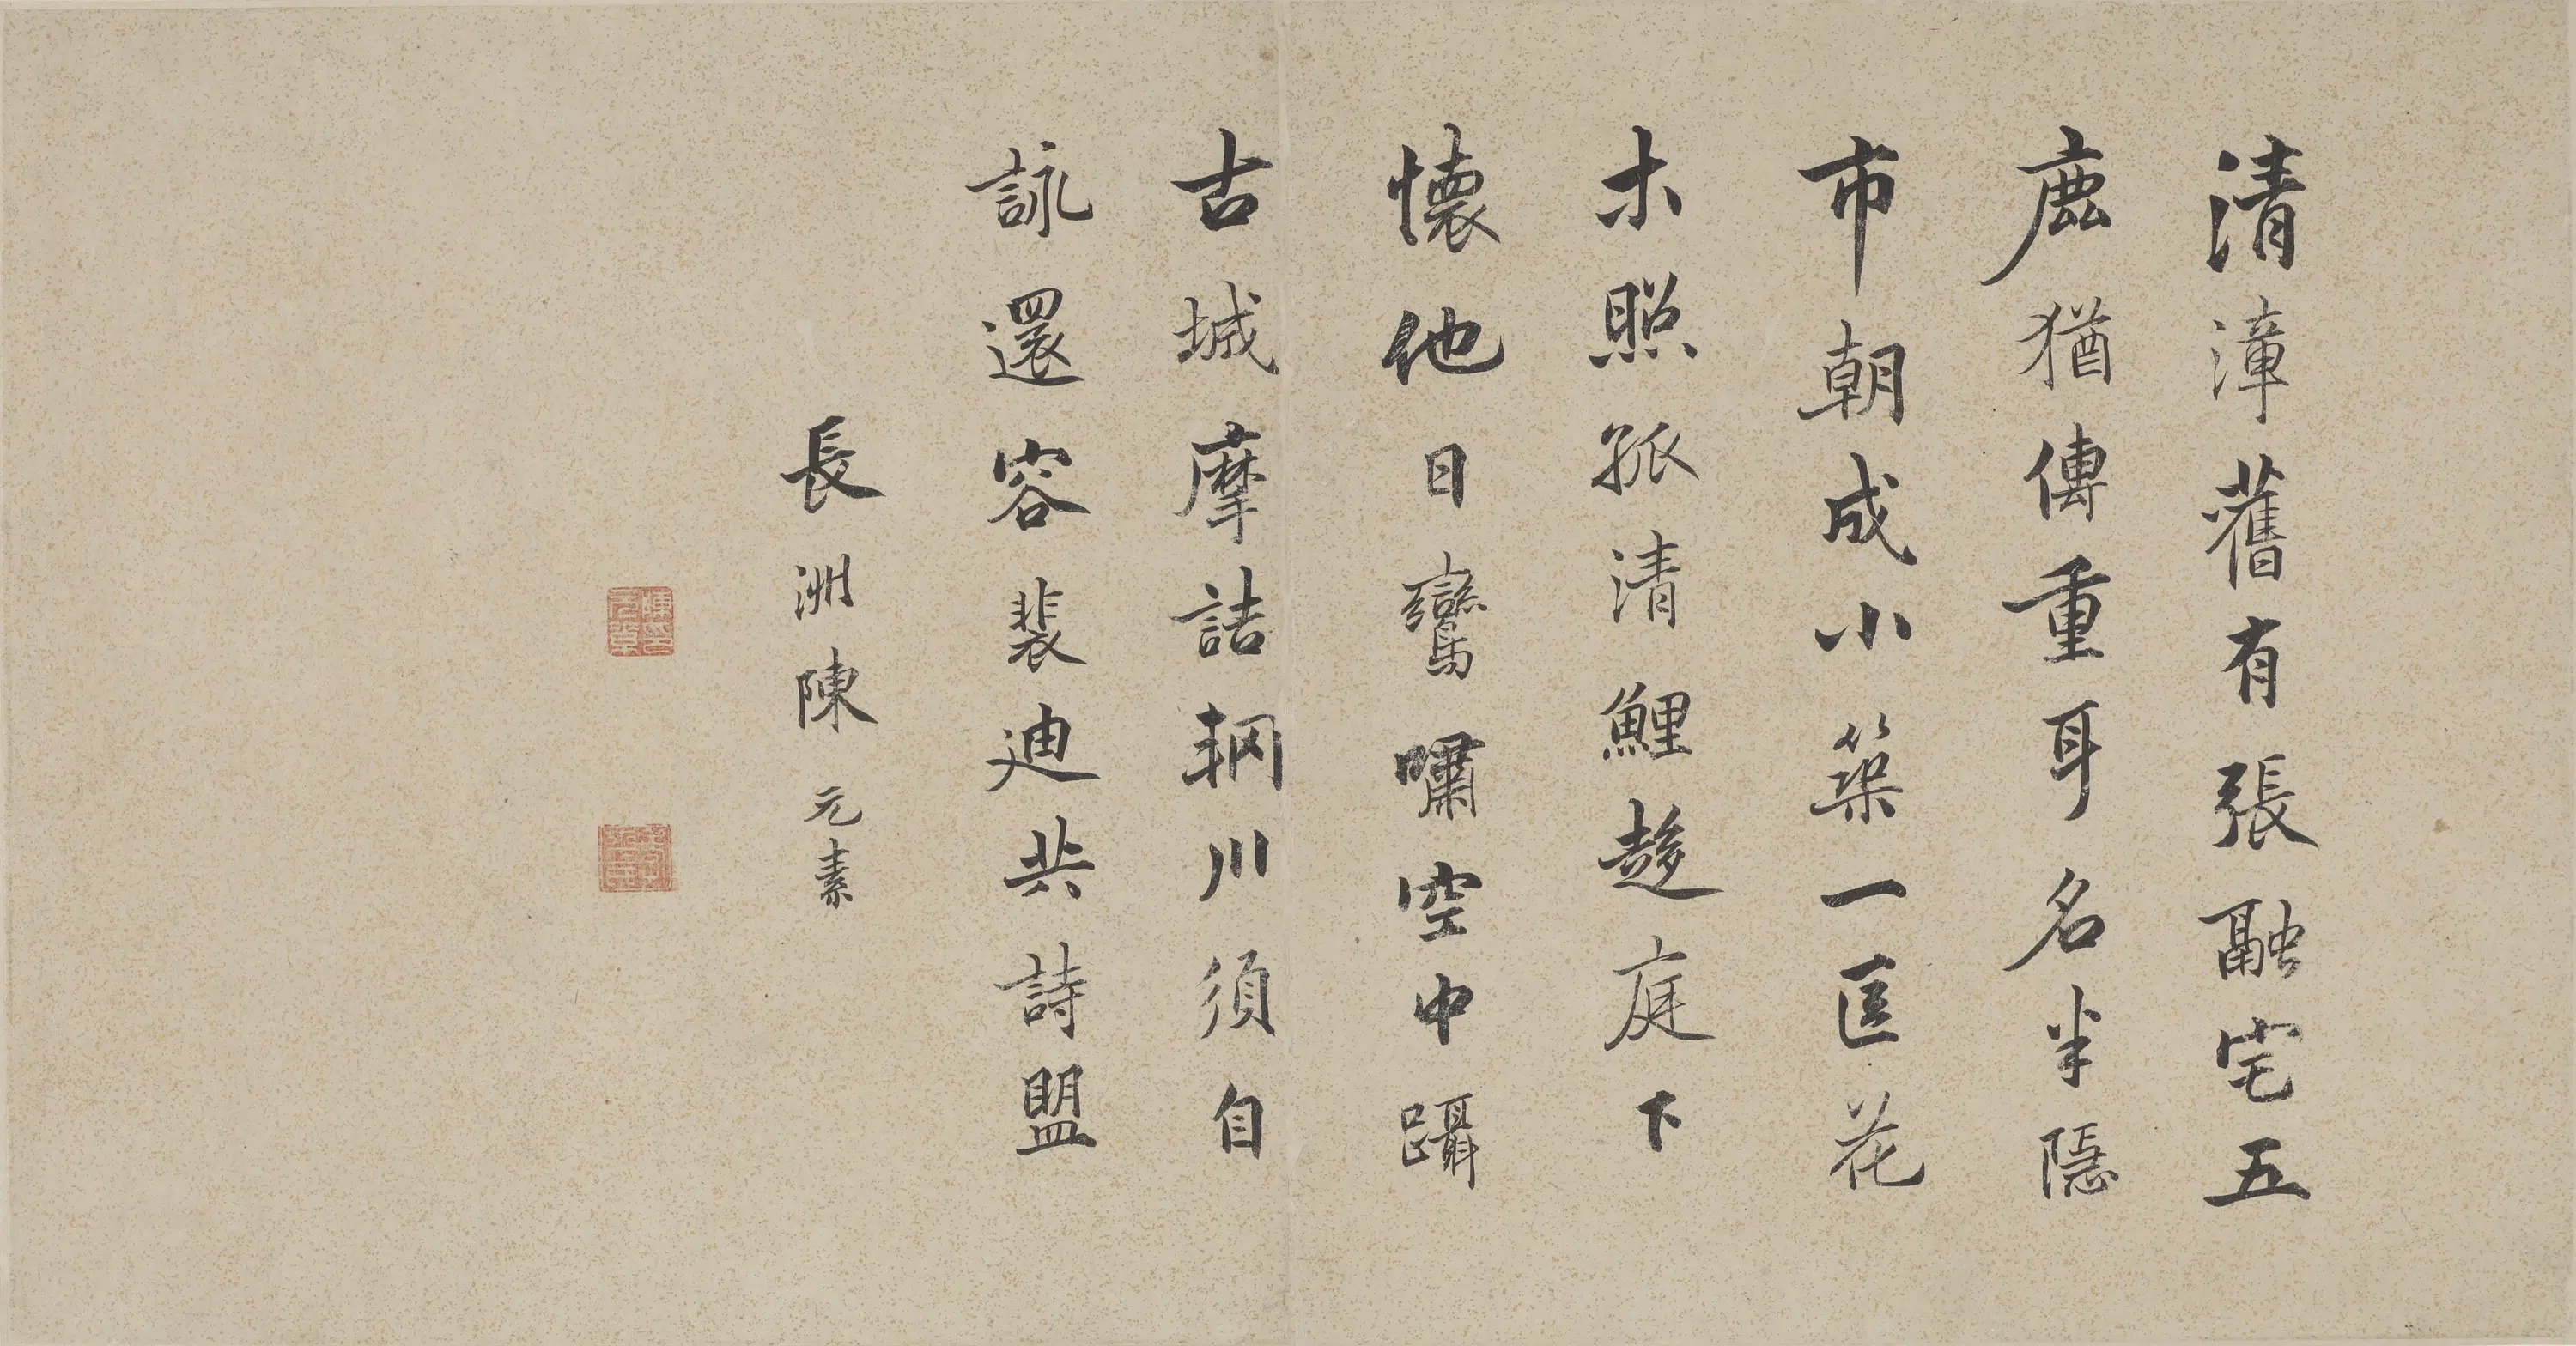 清漳舊有張融宅五
鹿猶傳重耳名半隱
市朝成小築一區花
木照孤清鯉趍庭下
懷他日鸞嘯空中躡
古城摩詰輞川須自
詠還容裴迪共詩盟
長洲陳元素
陳印元素